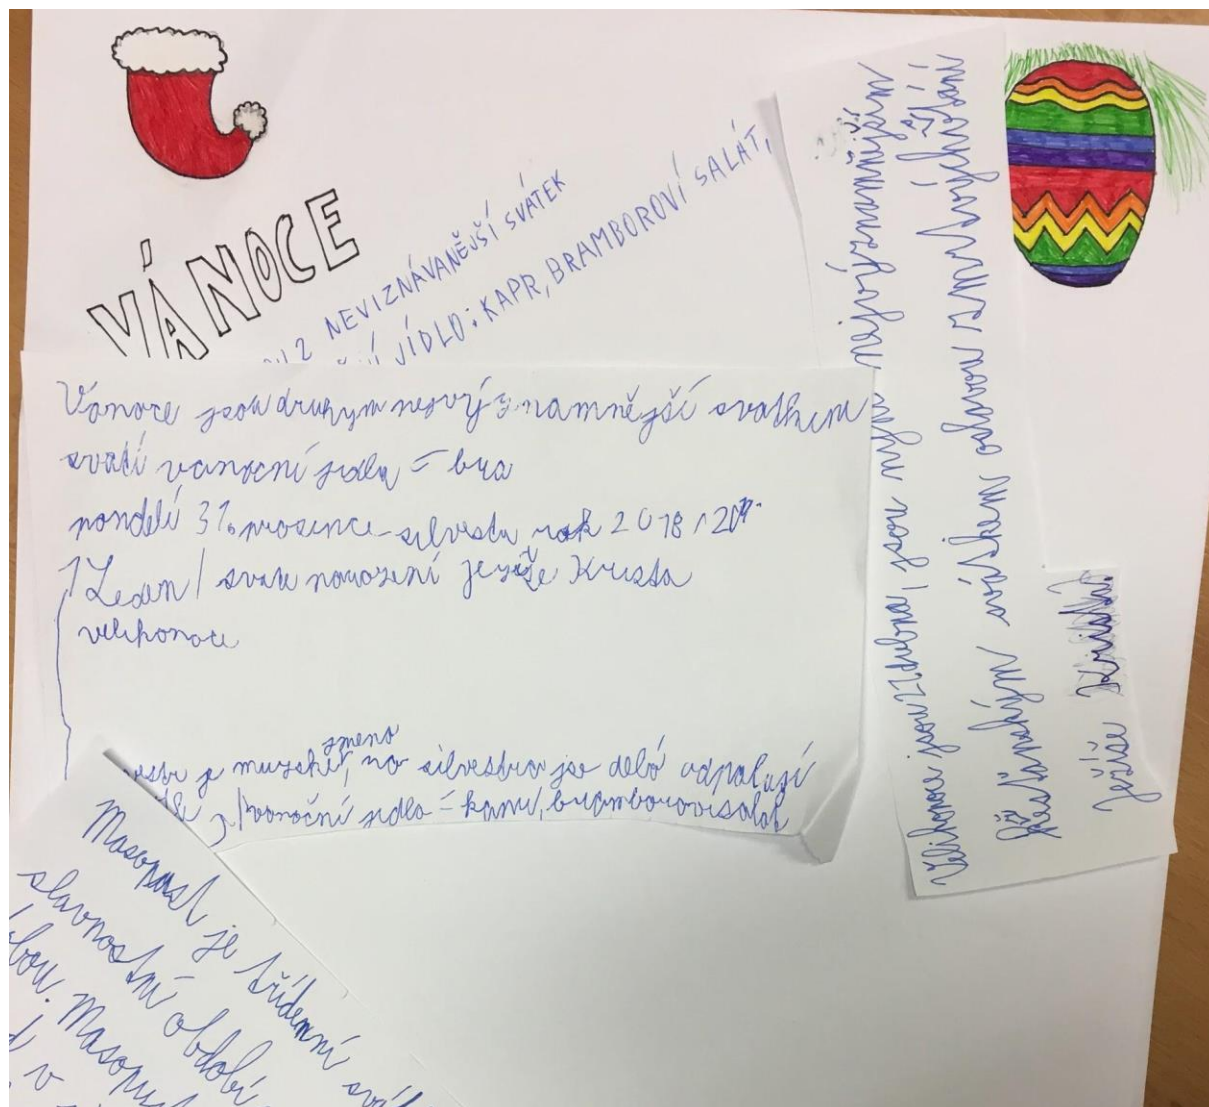 VÁNOCE
NEVIZNÁVANĚJŠÍ SVÁTEK
JÍDLO: KAPR, BRAMBOROVÍ SALÁT,
Vánoce jsou druhym nejvýznamnější svatkem
svatí vanocní jidla = bra
pondelí 31. prosince - silvestr rok 2018 /
1 Leden / svate narozeni ježiše Krista
velikonoce
je muzské jmeno, na silvestra jse dělá odpalují
vanoční jidlo = kapr, bramborovisalat
Velikonoce jsou 22 dubna, jsou nejvýznamnějším
křesťanským svátkem oslavou zmrtvýchvstání
Ježíše Krista.
Masopust je třídenní
slavnostní období
Masopust
v